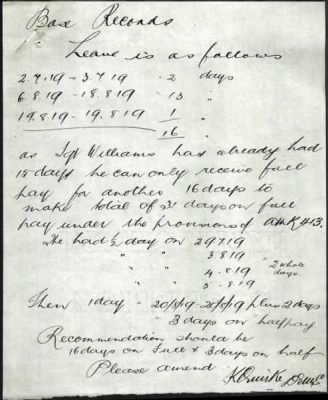 Base Records
Leave is as follows
2.7.19 - 3.7.19 - 2 days
6.8.19 - 18.8.19 - 13 "
19.8.19 - 19.8.19 1 "
16
as Sgt Williams has already had
15 days he can only receive full
pay for another 16 days to
make total of 31 days on full
pay under the provisions of
He had ½ day on 29.7.19
" " " 3.8.19
" " " 4.8.19 " 2 whole
" " " 5.8.19 days.
Then 1 day - 20/8/19 - 20/8/19 plus 2 days
= 3 days on half pay
Recommendation should be
16 days on Full & 3 days on half
Please amend